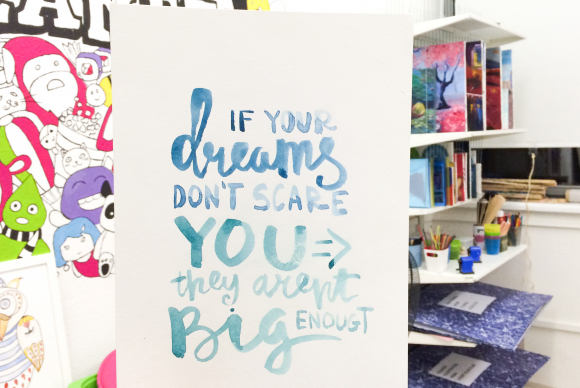 IF YOUR
dreams
DON'T SCARE
YOU⇒
they aren't
Big ENOUGT